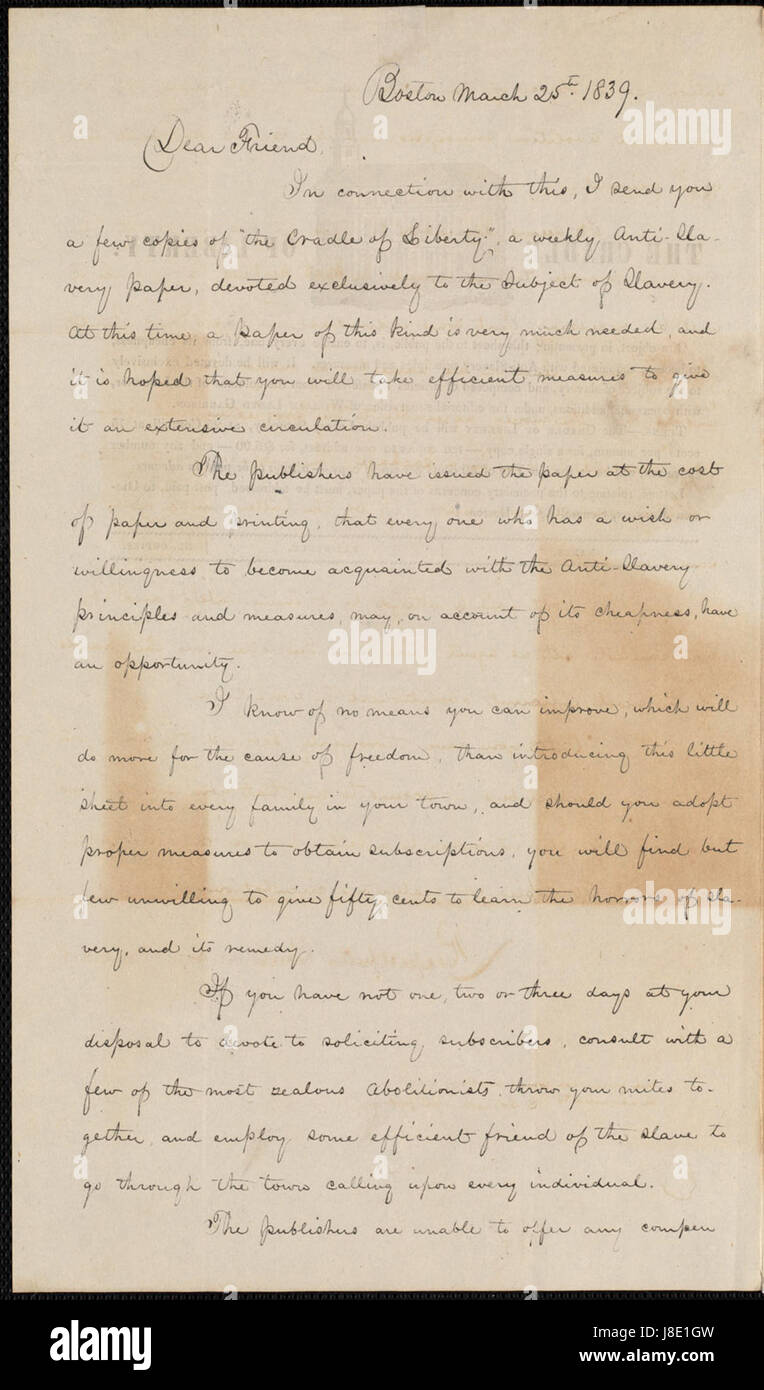 Boston March 25th 1839.
Dear Friend,
In connection with this, I send you
a few copies of "the Cradle of Liberty", a weekly Anti-Sla-
very paper, devoted exclusively to the Subject of Slavery.
At this time, a paper of this kind is very much needed, and
it is hoped that you will take efficient measures to give
it an extensive circulation.
The publishers have issued the paper at the cost
of paper and printing, that every one who has a wish or
willingness to become acquainted with the Anti-Slavery
principles and measures, may, on account of its cheapness, have
an opportunity.
I know of no means you can improve, which will
do more for the cause of freedom, than introducing this little
sheet into every family in your town, and should you adopt
proper measures to obtain subscriptions, you will find but
few unwilling to give fifty cents to learn the horrors of sla-
very, and its remedy.
If you have not one, two or three days at your
disposal to devote to soliciting subscribers, consult with a
few of the most zealous Abolitionists, throw your mites to-
gether, and employ some efficient friend of the slave to
go through the town calling upon every individual.
The publishers are unable to offer any compen
alamy
alamy
Image ID: J8E1GW
www.alamy.com